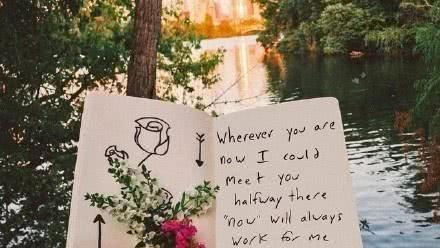 Wherever you are
now I could
meet you
halfway there
"now" will always
work for me